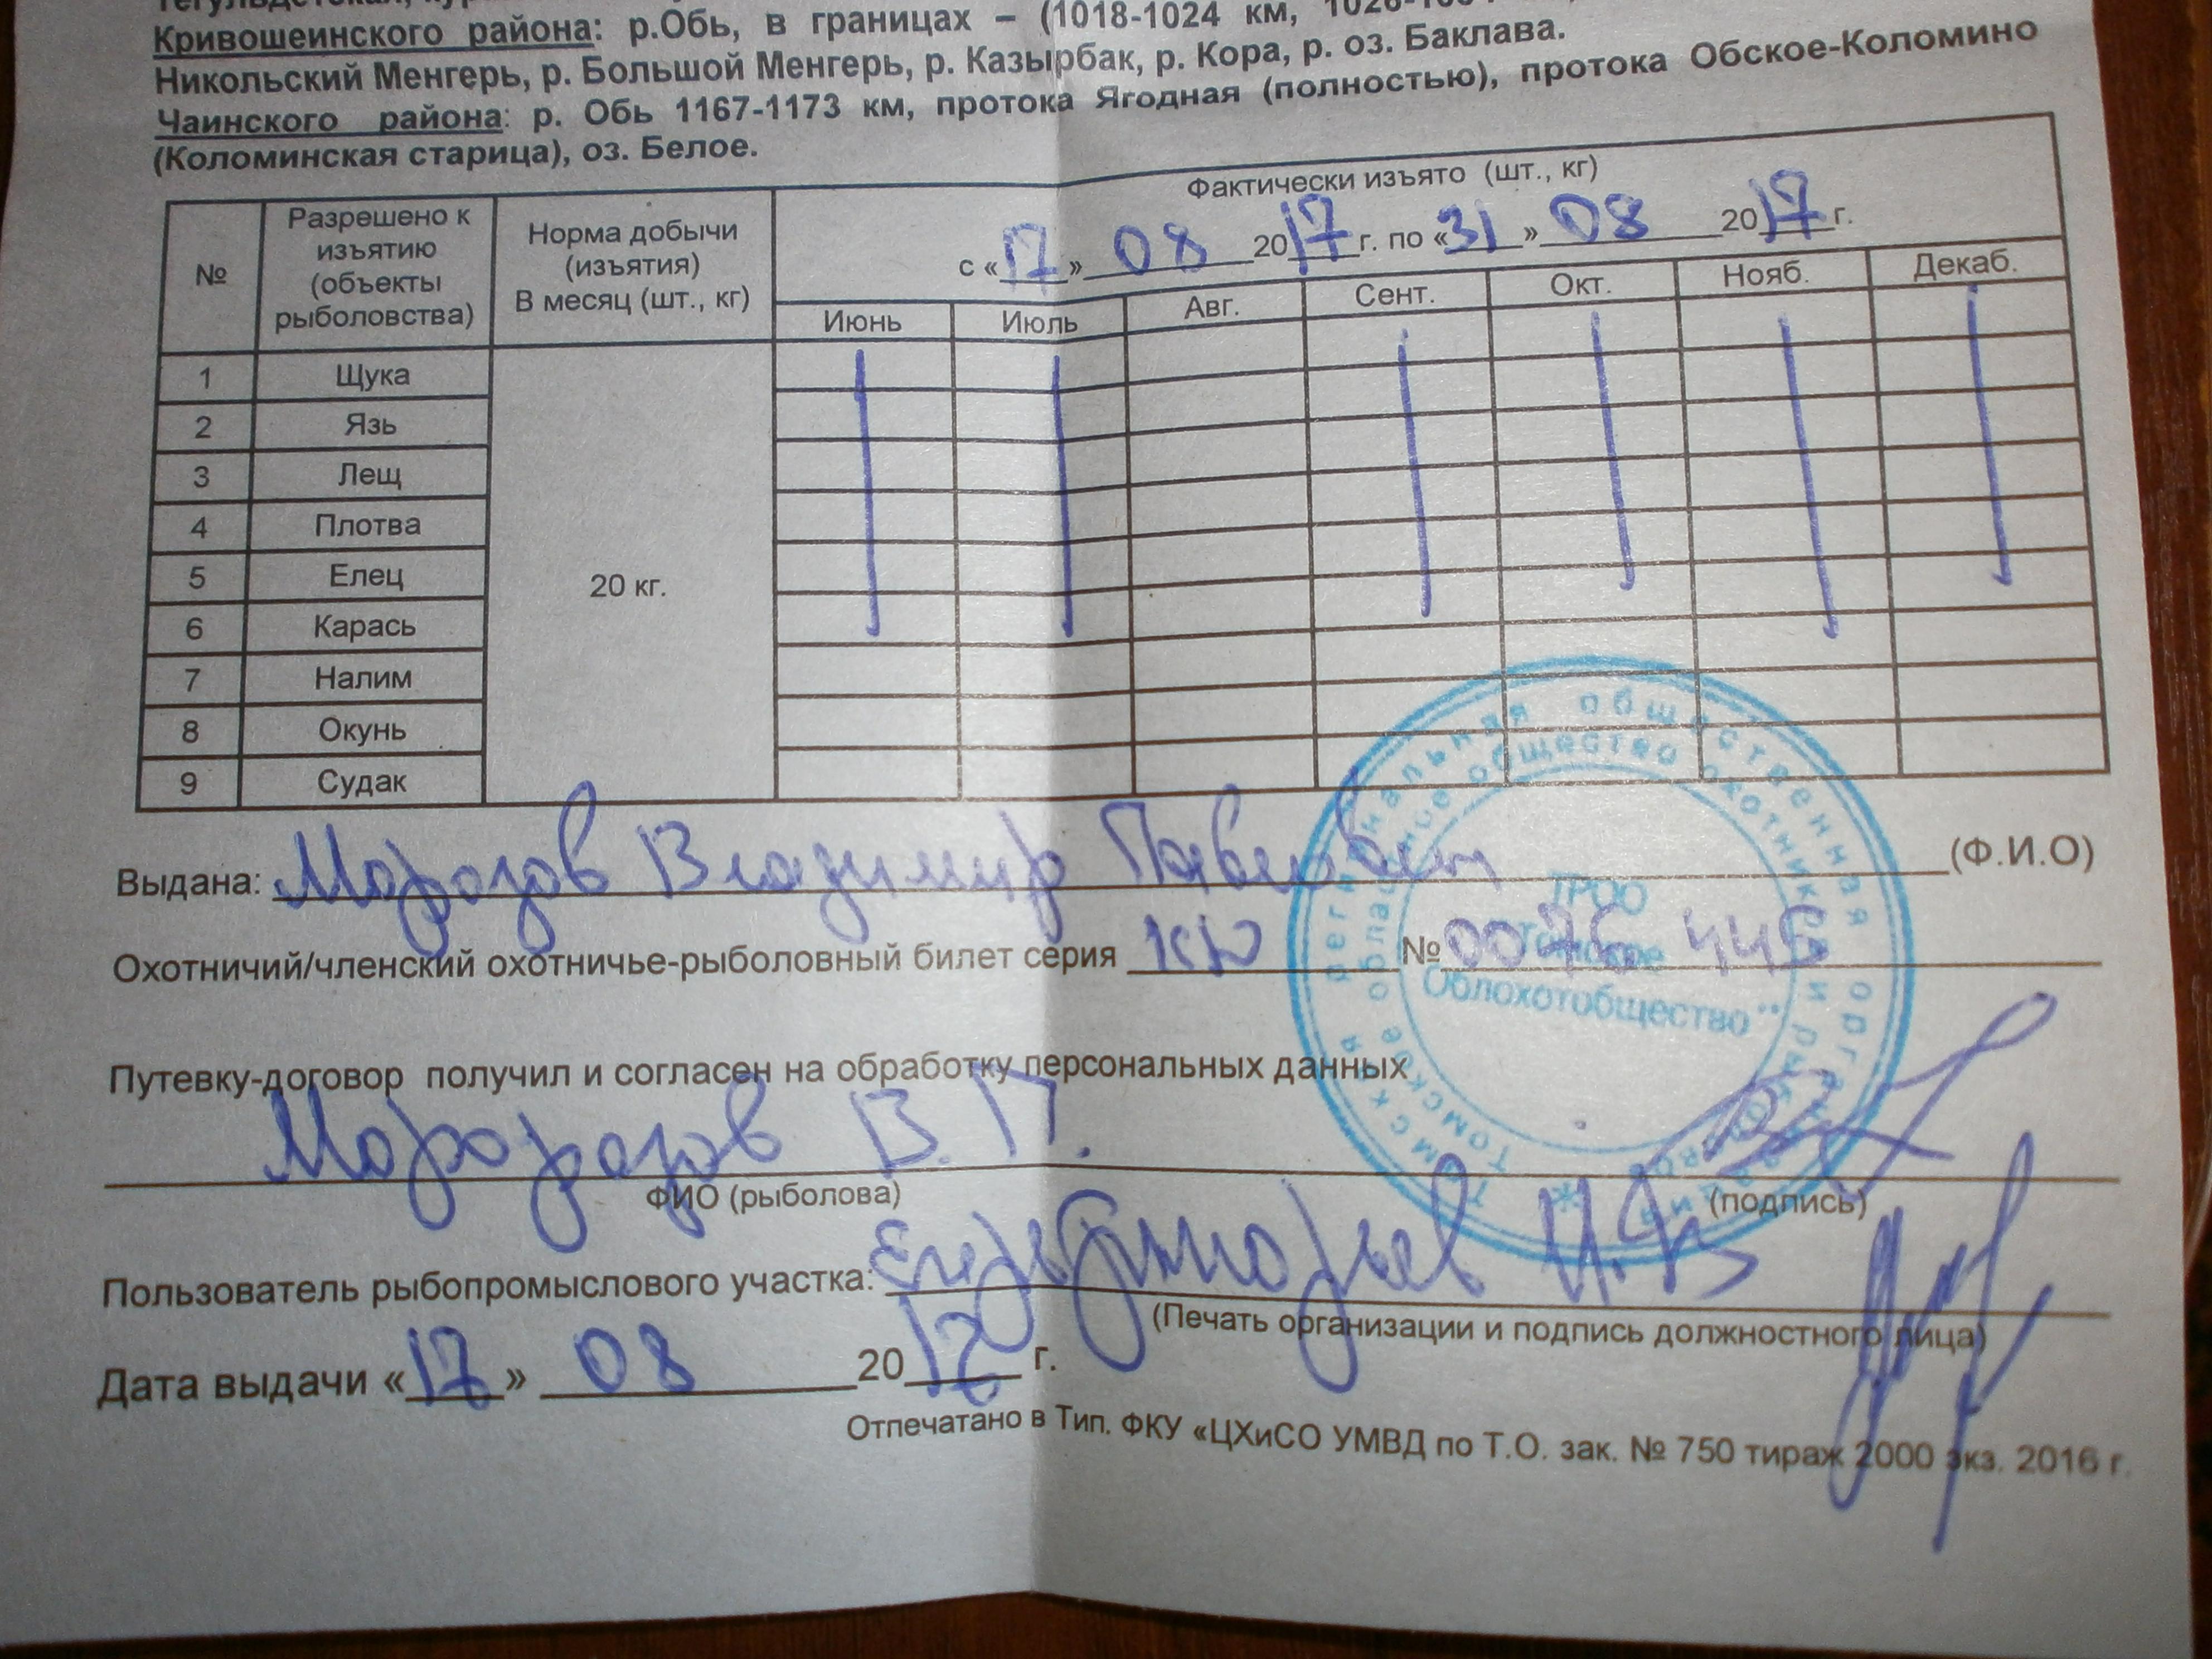 Кривошеинского района: р.Обь, в границах – (1018-1024 км,
Никольский Менгерь, р. Большой Менгерь, р. Казырбак, р. Кора, р. оз. Баклава.
Чаинского района: р. Обь 1167-1173 км, протока Ягодная (полностью), протока Обское-Коломино
(Коломинская старица), оз. Белое.
№ Разрешено к изъятию (объекты рыболовства) Норма добычи (изъятия) В месяц (шт., кг) Фактически изъято (шт., кг)
с «17» 08 2017 г. по «31» 08 2017 г.
Июнь Июль Авг. Сент. Окт. Нояб. Декаб.
1 Щука
2 Язь
3 Лещ
4 Плотва
5 Елец 20 кг.
6 Карась
7 Налим
8 Окунь
9 Судак
Выдана: Морозов Владимир Павлович (Ф.И.О)
Охотничий/членский охотничье-рыболовный билет серия №
Томская региональная общественная организация
Томское областное общество охотников и рыболовов
ТРОО
Томское
Облохотобщество"
Путевку-договор получил и согласен на обработку персональных данных
В. П.
ФИО (рыболова) (подпись)
Пользователь рыбопромыслового участка:
(Печать организации и подпись должностного лица)
Дата выдачи «17» 08 2017 г.
Отпечатано в Тип. ФКУ «ЦХиСО УМВД по Т.О. зак. № 750 тираж 2000 экз. 2016 г.